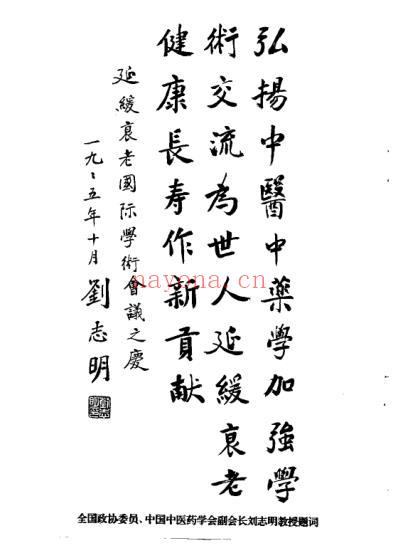 弘揚中醫中藥學加強學
術交流為世人延緩衰老
健康長寿作新貢献
延緩衰老國际學術會議之慶
一九九五年十月
劉志明
nayona.cn
全国政协委员、中国中医药学会副会长刘志明教授题词